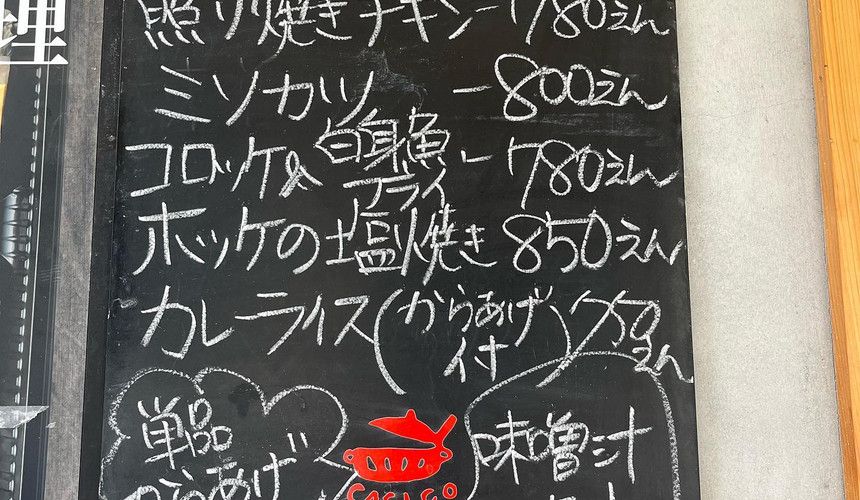 照り焼きチキン-780えん
ミソカツ -800えん
コロッケ&白身魚フライ-780えん
ホッケの塩焼き 850えん
カレーライス(からあげ付)
えん
単品
からあげ
味噌汁